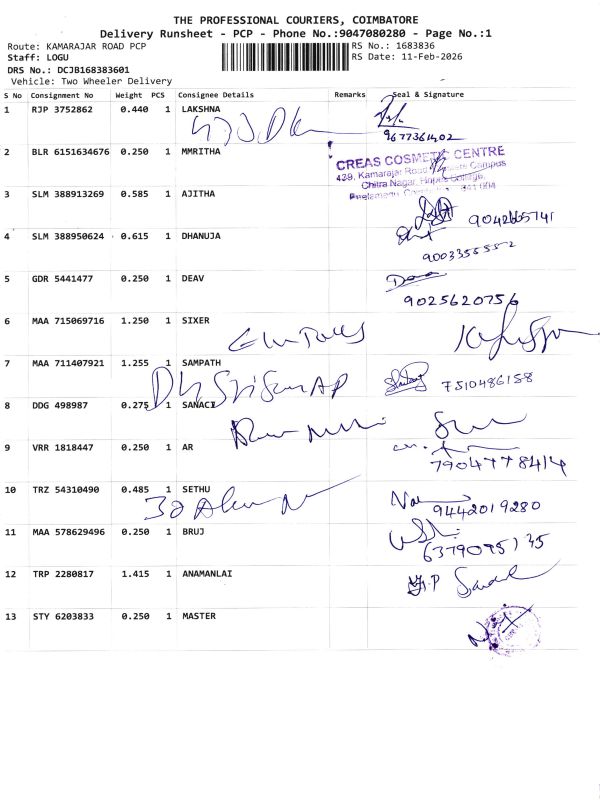 THE PROFESSIONAL COURIERS, COIMBATORE
Delivery Runsheet - PCP - Phone No.:9047080280 - Page No.:1
Route: KAMARAJAR ROAD PCP RS No.: 1683836
Staff: LOGU RS Date: 11-Feb-2026
DRS No.: DCJB168383601
Vehicle: Two Wheeler Delivery
S No Consignment No Weight PCS Consignee Details Remarks Seal & Signature
1 RJP 3752862 0.440 1 LAKSHNA
9677361402
2 BLR 6151634676 0.250 1 MMRITHA
CREAS COSMETIC CENTRE
429, Kamarajar Road Campus
Chitra Nagar, Hopes College,
3 SLM 388913269 0.585 1 AJITHA
9042665741
4 SLM 388950624 0.615 1 DHANUJA
9003355552
5 GDR 5441477 0.250 1 DEAV
9025620756
6 MAA 715069716 1.250 1 SIXER
7 MAA 711407921 1.255 1 SAMPATH
7510486158
8 DDG 498987 0.275 1 SANACI
9 VRR 1818447 0.250 1 AR
7904778414
10 TRZ 54310490 0.485 1 SETHU
9442019280
11 MAA 578629496 0.250 1 BRUJ
6379095735
12 TRP 2280817 1.415 1 ANAMANLAI
13 STY 6203833 0.250 1 MASTER